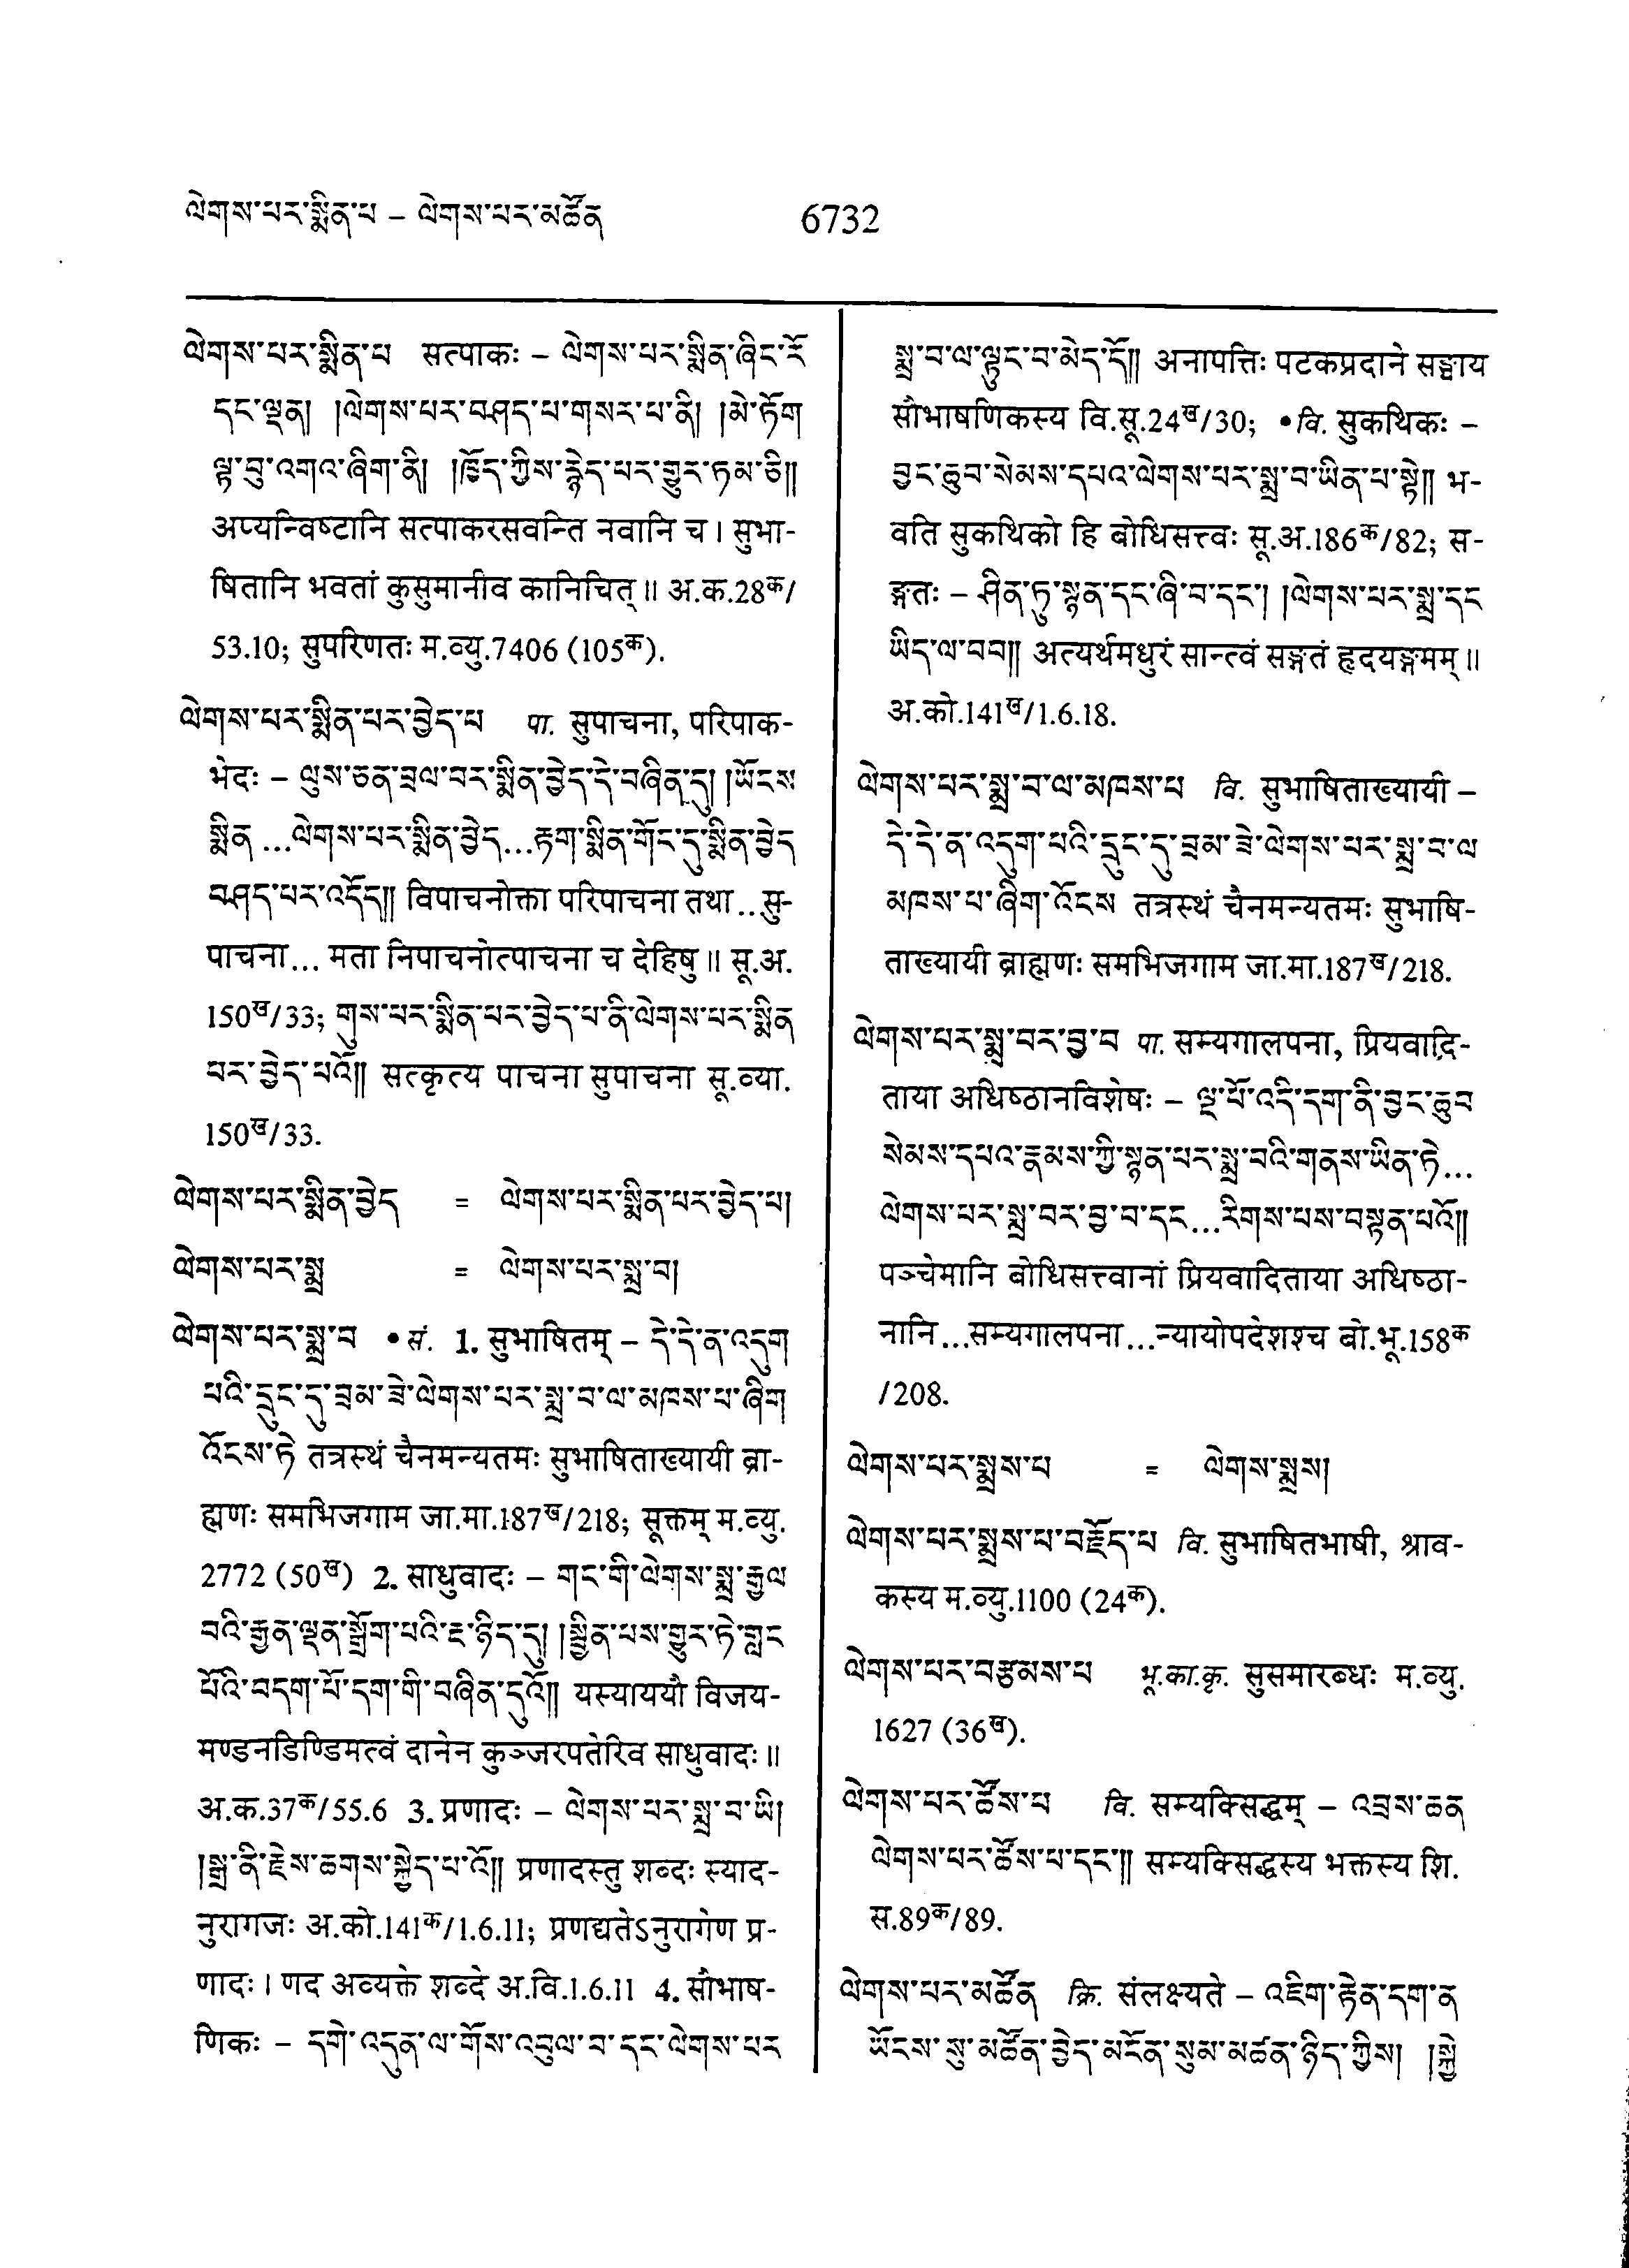 ལེགས་པར་སྨིན་པ – ལེགས་པར་མཚོན
6732
ལེགས་པར་སྨིན་པ सत्पाकः – ལེགས་པར་སྨིན་ཞིང་རོ
དང་ལྡན། །ལེགས་པར་བཤད་པ་གསར་པ་ནི། །མེ་ཏོག
ལྟ་བུ་འགའ་ཞིག་ནི། །ཁྱོད་ཀྱིས་རྙེད་པར་གྱུར་ཏམ་ཅི།།
अप्यन्विष्टानि सत्पाकरसवन्ति नवानि च । सुभा-
षितानि भवतां कुसुमानीव कानिचित् ॥ अ.क.28क/
53.10; सुपरिणतः म.व्यु.7406 (105क).
ལེགས་པར་སྨིན་པར་བྱེད་པ पा. सुपाचना, परिपाक-
भेदः – ལུས་ཅན་བྲལ་བར་སྨིན་བྱེད་དེ་བཞིན་དུ། །ཡོངས
སྨིན ...ལེགས་པར་སྨིན་བྱེད...རྟག་སྨིན་གོང་དུ་སྨིན་བྱེད
བཤད་པར་འདོད།། विपाचनोक्ता परिपाचना तथा...सु-
पाचना... मता निपाचनोत्पाचना च देहिषु ॥ सू.अ.
150ख/33; གུས་པར་སྨིན་པར་བྱེད་པ་ནི་ལེགས་པར་སྨིན
པར་བྱེད་པའོ།། सत्कृत्य पाचना सुपाचना सू.व्या.
150ख/33.
ལེགས་པར་སྨིན་བྱེད = ལེགས་པར་སྨིན་པར་བྱེད་པ།
ལེགས་པར་སྨྲ = ལེགས་པར་སྨྲ་བ།
ལེགས་པར་སྨྲ་བ • सं. 1. सुभाषितम् – དེ་དེ་ན་འདུག
པའི་དྲུང་དུ་བྲམ་ཟེ་ལེགས་པར་སྨྲ་བ་ལ་མཁས་པ་ཞིག
འོངས་ཏེ तत्रस्थं चैनमन्यतमः सुभाषिताख्यायी ब्रा-
ह्मणः समभिजगाम जा.मा.187ख/218; सूक्तम् म.व्यु.
2772 (50ख) 2. साधुवादः – གང་གི་ལེགས་སྨྲ་རྒྱལ
བའི་རྒྱན་ལྡན་སྒྲོག་པའི་རྔ་ཉིད་དུ། །སྦྱིན་པས་གྱུར་ཏེ་གླང
པོའི་བདག་པོ་དག་གི་བཞིན་དུའོ།། यस्याययौ विजय-
मण्डनडिण्डिमत्वं दानेन कुञ्जरपतेरिव साधुवादः ॥
अ.क.37क/55.6 3. प्रणादः – ལེགས་པར་སྨྲ་བ་ཡི།
།སྒྲ་ནི་རྗེས་ཆགས་སྐྱེད་པ་འོ།། प्रणादस्तु शब्दः स्याद-
नुरागजः अ.को.141क/1.6.11; प्रणद्यतेऽनुरागेण प्र-
णादः । णद अव्यक्ते शब्दे अ.वि.1.6.11 4. सौभाष-
णिकः – དགེ་འདུན་ལ་གོས་འབུལ་བ་དང་ལེགས་པར
སྨྲ་བ་ལ་ལྟུང་བ་མེད་དོ།། अनापत्तिः पटकप्रदाने सङ्घाय
सौभाषणिकस्य वि.सू.24ख/30; • वि. सुकथिकः –
བྱང་ཆུབ་སེམས་དཔའ་ལེགས་པར་སྨྲ་བ་ཡིན་པ་སྟེ།། भ-
वति सुकथिको हि बोधिसत्त्वः सू.अ.186क/82; स-
ङ्गतः – ཤིན་ཏུ་སྙན་དང་ཞི་བ་དང་། །ལེགས་པར་སྨྲ་དང
ཡིད་ལ་བབ།། अत्यर्थमधुरं सान्त्वं सङ्गतं हृदयङ्गमम् ॥
अ.को.141ख/1.6.18.
ལེགས་པར་སྨྲ་བ་ལ་མཁས་པ वि. सुभाषिताख्यायी –
དེ་དེ་ན་འདུག་པའི་དྲུང་དུ་བྲམ་ཟེ་ལེགས་པར་སྨྲ་བ་ལ
མཁས་པ་ཞིག་འོངས तत्रस्थं चैनमन्यतमः सुभाषि-
ताख्यायी ब्राह्मणः समभिजगाम जा.मा.187ख/218.
ལེགས་པར་སྨྲ་བར་བྱ་བ पा. सम्यगालपना, प्रियवादि-
ताया अधिष्ठानविशेषः – ལྔ་པོ་འདི་དག་ནི་བྱང་ཆུབ
སེམས་དཔའ་རྣམས་ཀྱི་སྙན་པར་སྨྲ་བའི་གནས་ཡིན་ཏེ...
ལེགས་པར་སྨྲ་བར་བྱ་བ་དང...རིགས་པས་བསྟན་པའོ།།
पञ्चेमानि बोधिसत्त्वानां प्रियवादिताया अधिष्ठा-
नानि...सम्यगालपना...न्यायोपदेशश्च बो.भू.158क
/208.
ལེགས་པར་སྨྲས་པ = ལེགས་སྨྲས།
ལེགས་པར་སྨྲས་པ་བརྗོད་པ वि. सुभाषितभाषी, श्राव-
कस्य म.व्यु.1100 (24क).
ལེགས་པར་བརྩམས་པ भू.का.कृ. सुसमारब्धः म.व्यु.
1627 (36ख).
ལེགས་པར་ཚོས་པ वि. सम्यक्सिद्धम् – འབྲས་ཆན
ལེགས་པར་ཚོས་པ་དང་།། सम्यक्सिद्धस्य भक्तस्य शि.
स.89क/89.
ལེགས་པར་མཚོན क्रि. संलक्ष्यते – འཇིག་རྟེན་དག་ན
ཡོངས་སུ་མཚོན་བྱེད་མངོན་སུམ་མཚན་ཉིད་ཀྱིས། །སྐྱེ